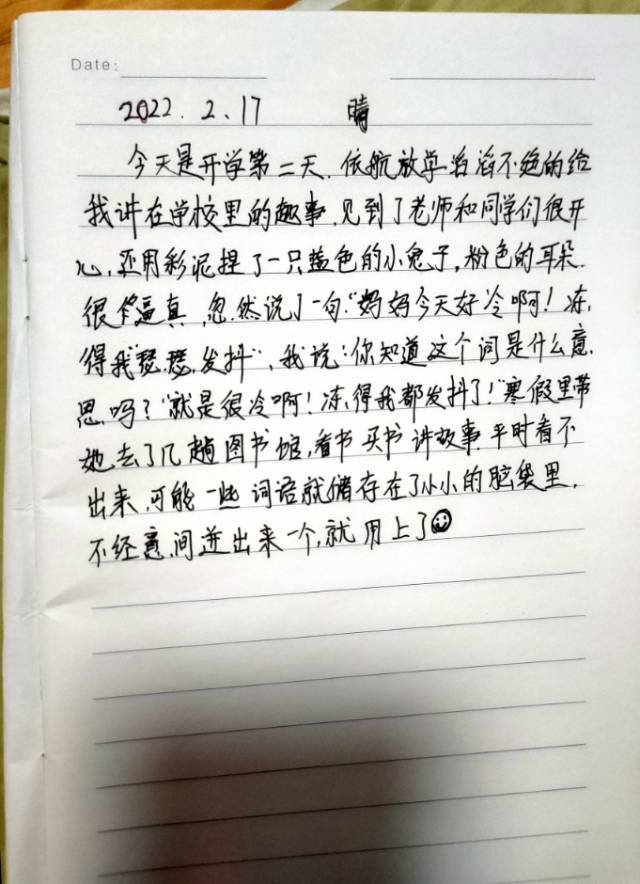 Date:
2022.2.17 晴
今天是开学第二天.依航放学滔滔不绝的给
我讲在学校里的趣事.见到了老师和同学们很开
心,还用彩泥捏了一只蓝色的小兔子,粉色的耳朵.
很逼真,忽然说了一句:"妈妈今天好冷啊!冻
得我"瑟瑟发抖",我说:你知道这个词是什么意
思吗?"就是很冷啊!冻得我都发抖了!"寒假里带
她去了几趟图书馆,看书买书讲故事.平时看不
出来,可能一些词语就储存在了小小的脑袋里.
不经意间迸出来一个,就用上了☺